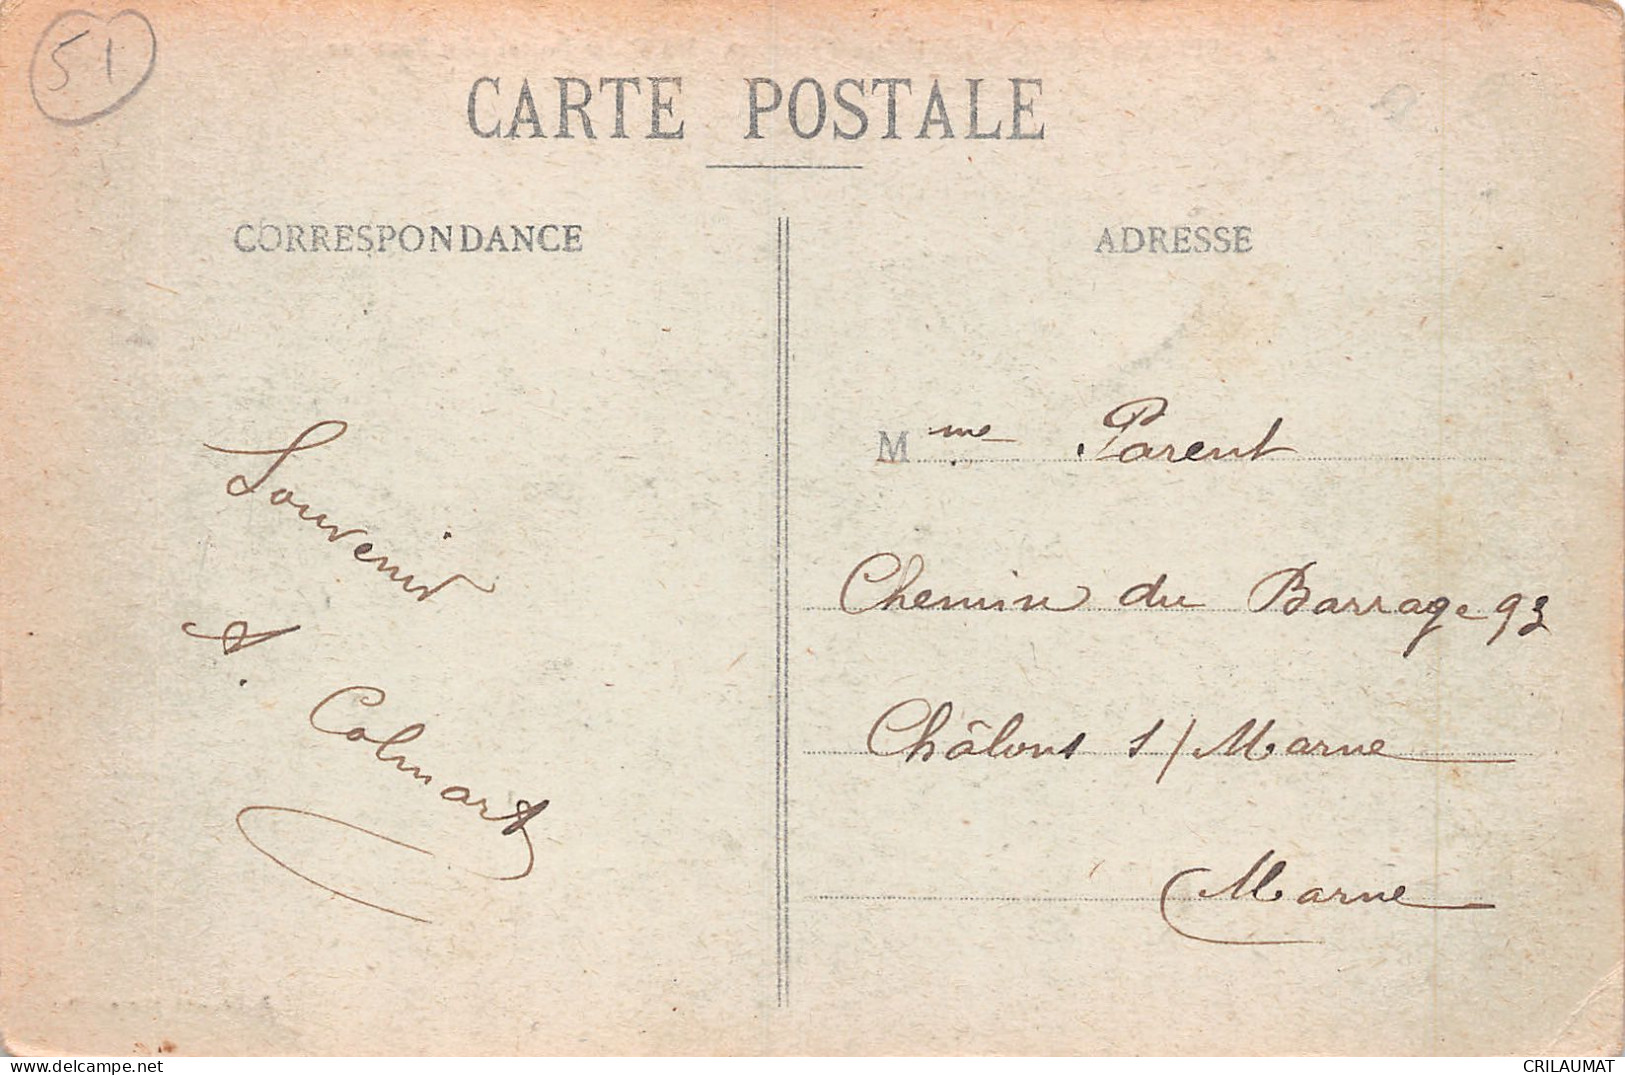 51
CARTE POSTALE
CORRESPONDANCE
ADRESSE
Souvenir
A. Colmart
Mme Parent
Chemin du Barrage 93
Châlons s/Marne
Marne
CRILAUMAT